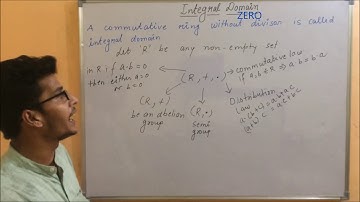 Integral Domain
ZERO
A commutative ring without divisor is called
integral domain
Let 'R' be any non-empty set
in R if a·b=0
then either a=0
or b=0
(R, +, ·)
commutative law
if a,b∈R ⇒ a·b=b·a
(R, +)
be an abelian
group
(R, ·)
semi
group
Distribution
law
a·(b+c)=a·b+a·c
(a+b)·c=a·c+b·c